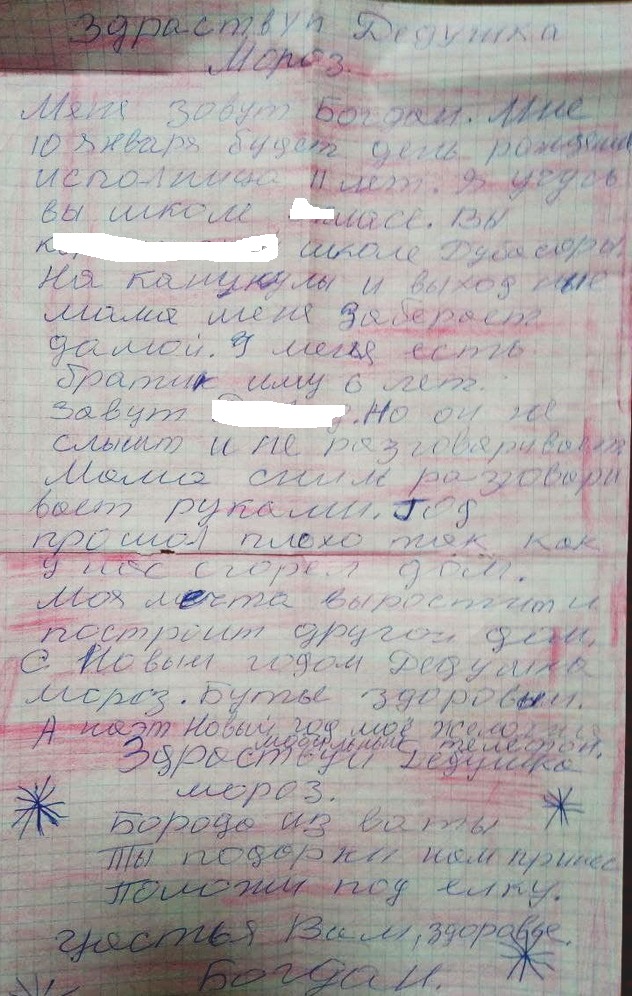 Здраствуй Дедушка
Мороз.
Меня зовут Богдан. Мне
10 января будет день рождения
исполница 11 лет. Я учусь
вы школе класе. Вы
школе Дубасары.
На каникулы и выходные
мама меня забераст
дамой. У меня есть
братик иму 6 лет.
Завут Но он не
слышт и не разговаривает
Мама сним разговари
вает руками. Год
прошол плохо так как
у нас сгорел дом.
Моя мечта вырости и
построит другой дом.
С Новым годом Дедушка
мороз. Буты здоровым.
А наэт Новый год моё желания
мобильный телефон.
Здраствуй Дедушка
мороз.
Борода из ваты
Ты подарки нам принес
Положи под елку.
щастья Вам, здоровье.
Богдан.